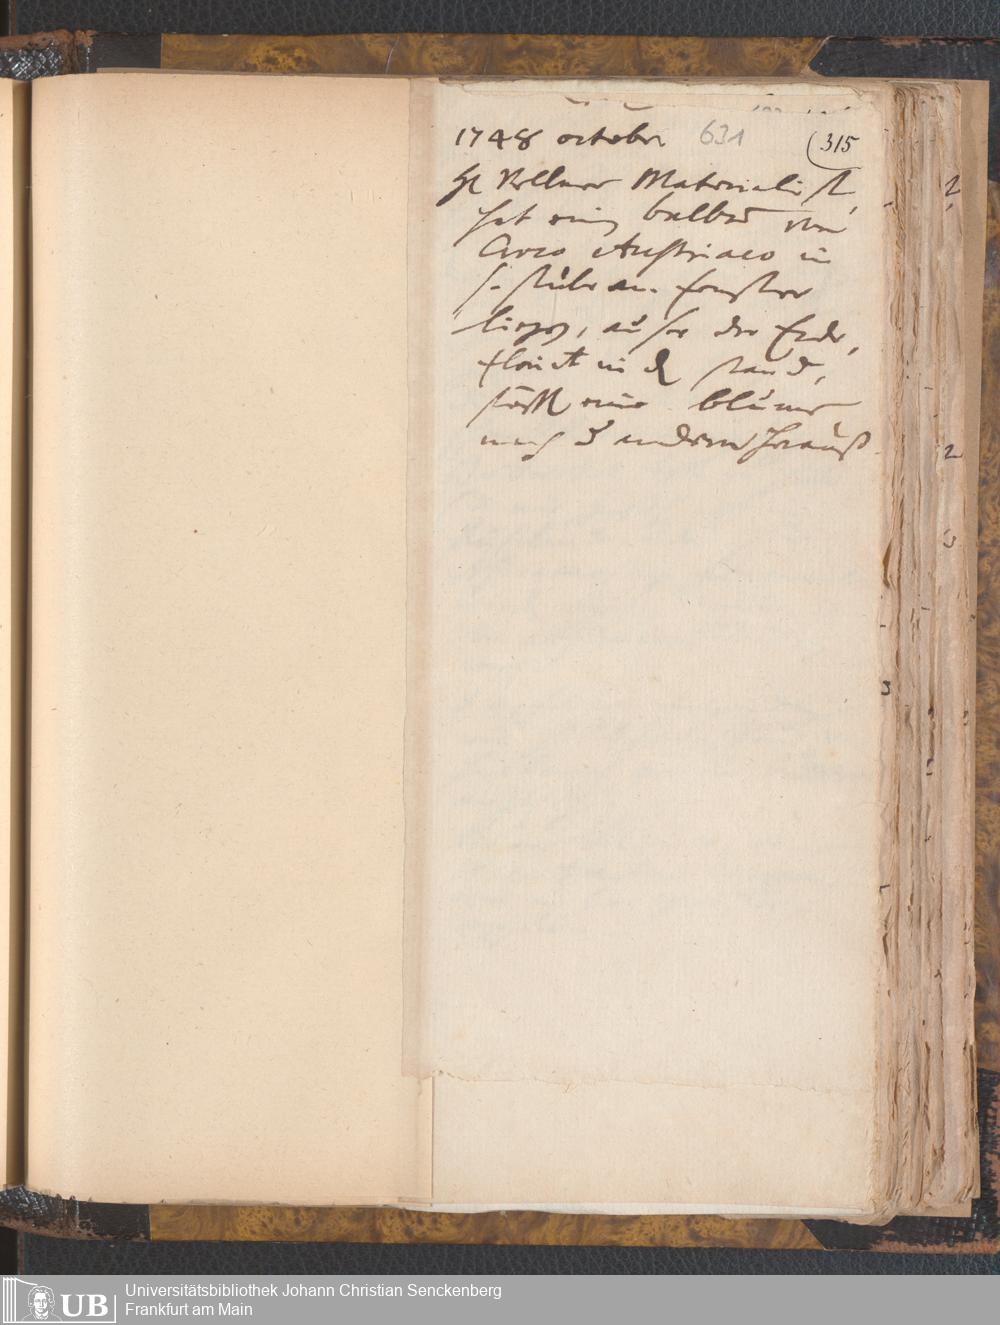 1748 october 631 (315
H Kellner Materialist,
hat ein bulbū von
Croco Austriaco in
s. stube am fenster
liegen, auser der Erde,
floriert in d stand,
steckt eine blume
nach d andern herauß.
UB Universitätsbibliothek Johann Christian Senckenberg
Frankfurt am Main